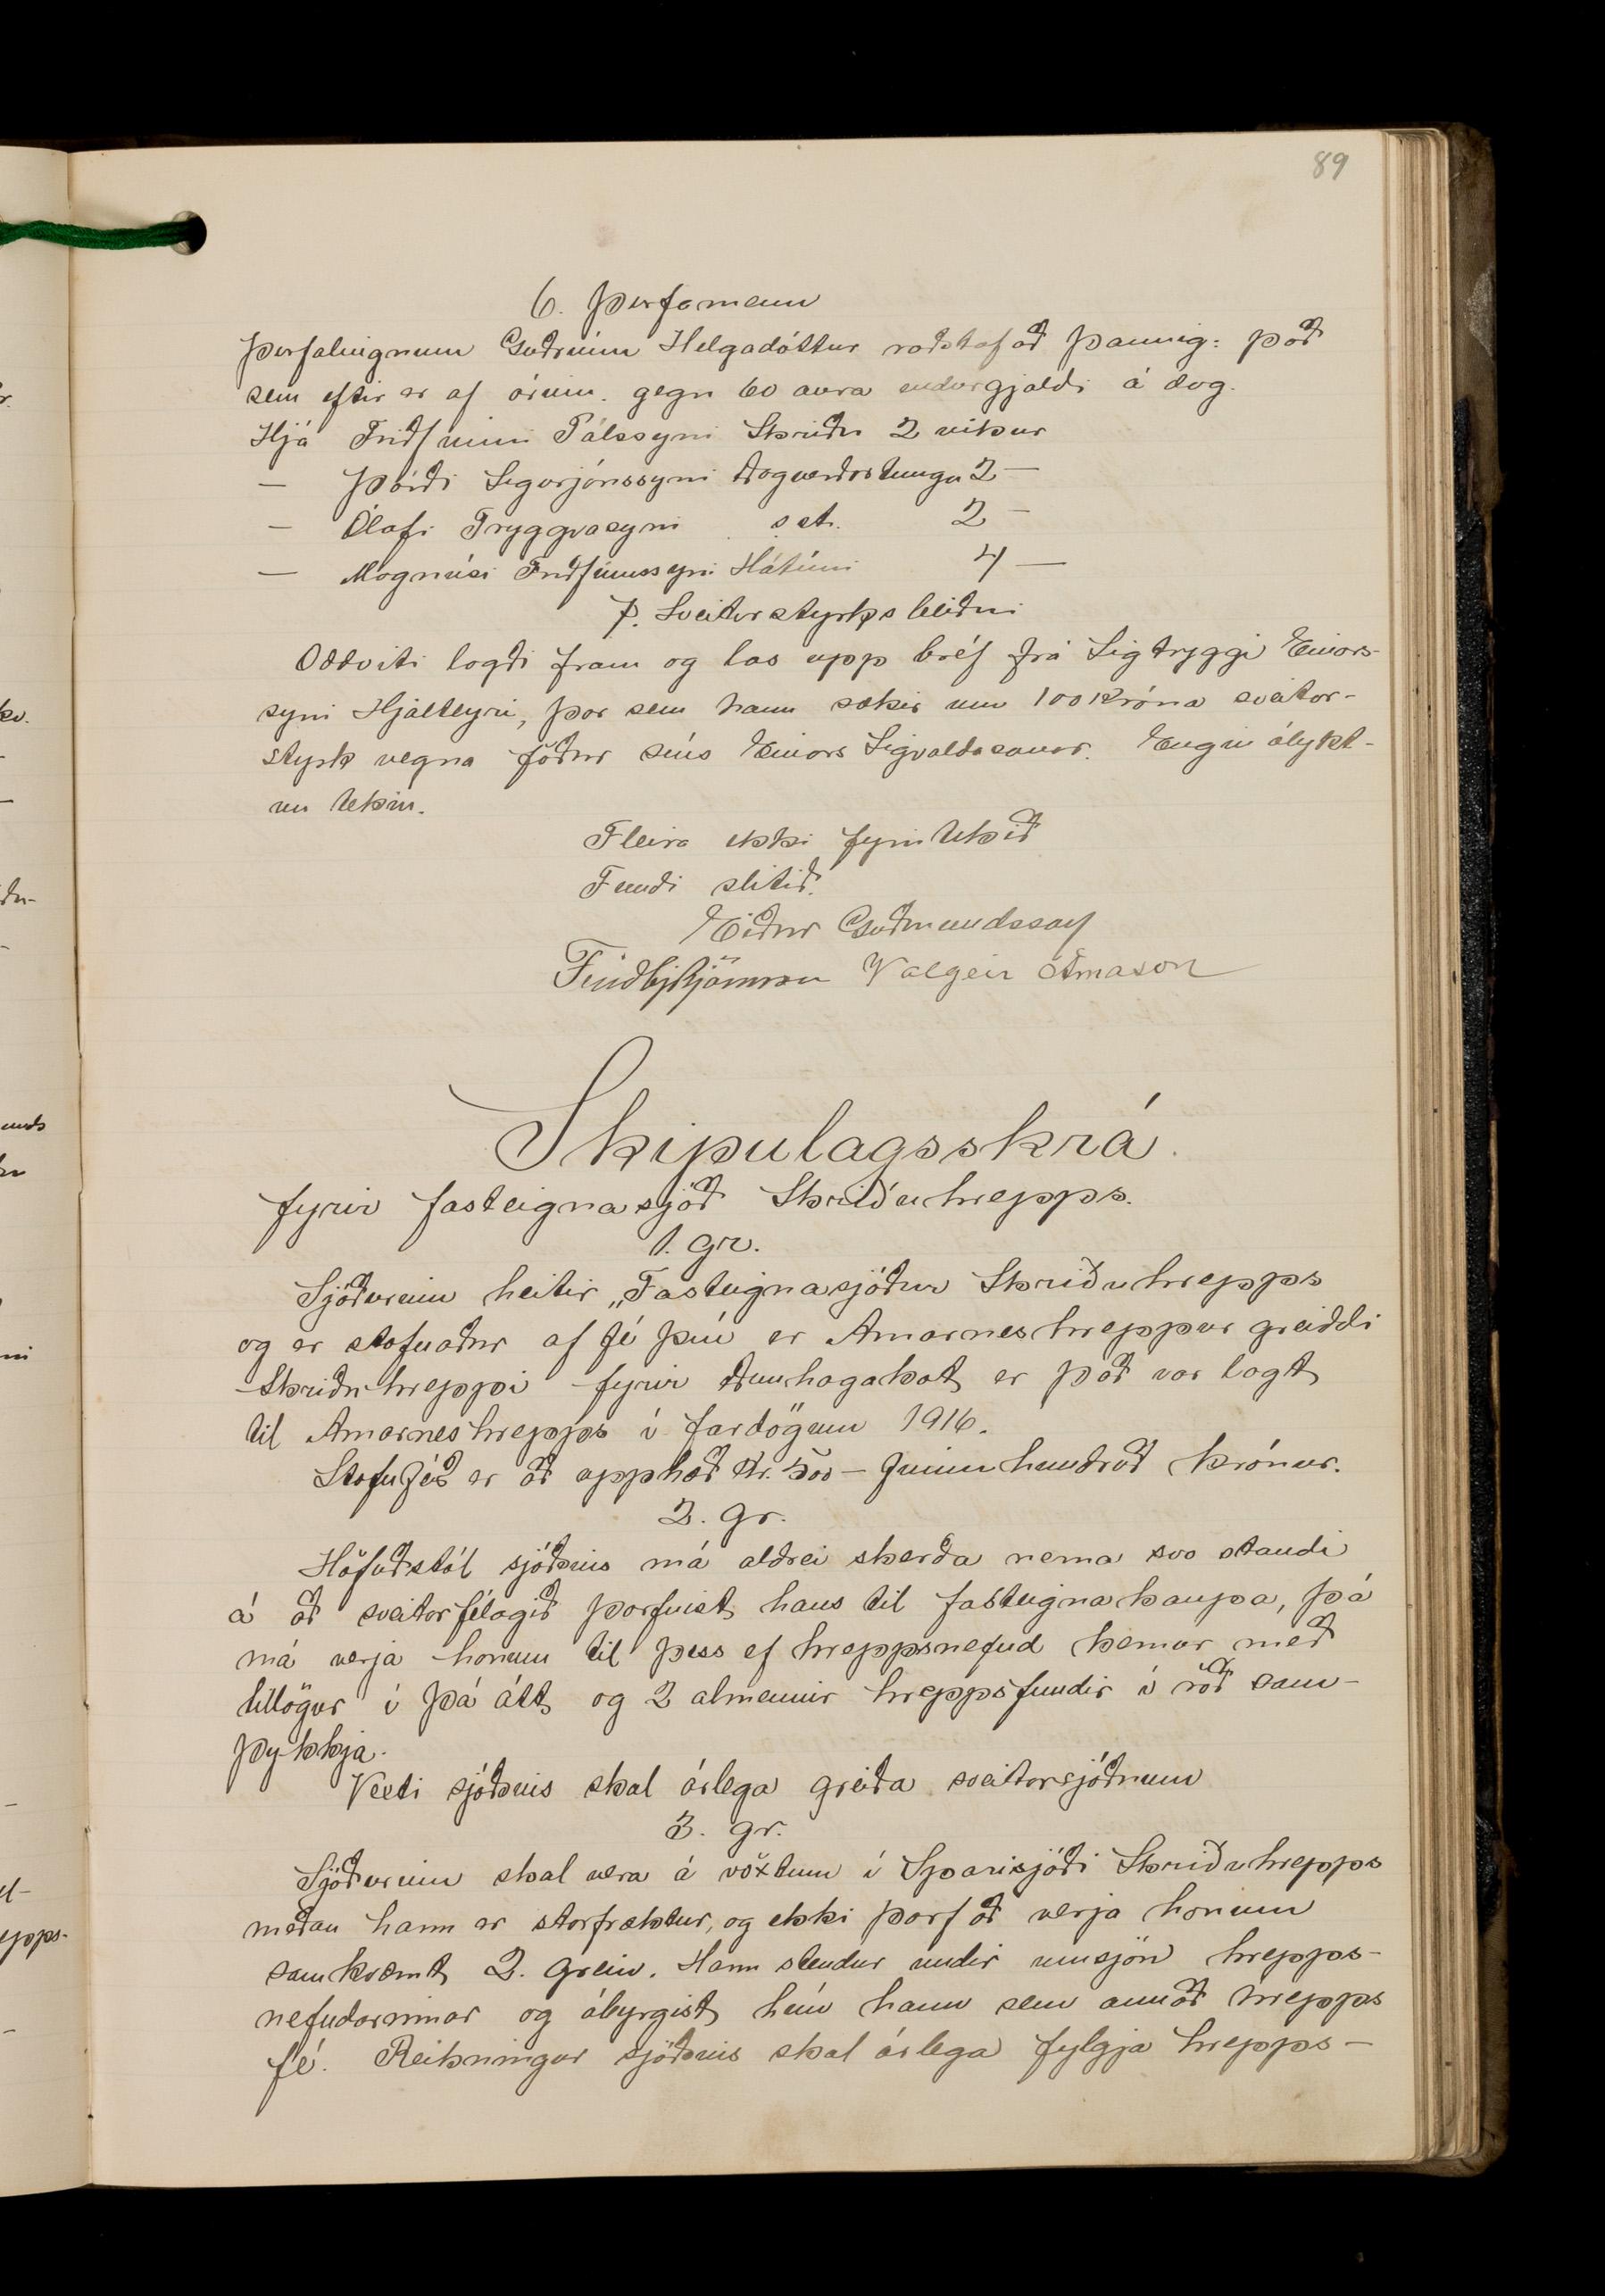 89
6. Þurfamenn
Þurfalingnum Guðrúnu Helgadóttur ráðstafað þannig: það
sem eftir er af árinu. gegn 60 aura endurgjaldi á dag.
Hjá Friðfinni Pálssyni Skriðu 2 vikur
— Þórði Sigurjónssyni Dagverðartungu 2 —
— Ólafi Tryggvasyni st. 2 —
— Magnúsi Friðfinnssyni Hátúni 4 —
7. Sveitarstyrks beiðni
Oddviti lagði fram og las upp bréf frá Sigtryggi Einars-
syni Hjalteyri, þar sem hann sækir um 100 króna sveitar-
styrk vegna föður síns Einars Sigvaldasonar. Engin álykt-
un tekin.
Fleira ekki fyrir tekið
Fundi slitið.
Eiður Guðmundsson
Valgeir Árnason
Skipulagsskrá.
fyrir fasteignasjóð Skriðuhrepps.
1. gr.
Sjóðurinn heitir „Fasteignasjóður Skriðuhrepps
og er stofnaður af fé því er Arnarneshreppur greiddi
Skriðuhreppi fyrir Dunhagakot er það var lagt
til Arnarneshrepps í fardögum 1916.
Stofnféð er að upphæð Kr. 500 — fimm hundruð krónur.
2. gr.
Höfuðstól sjóðsins má aldrei skerða nema svo standi
á að sveitarfélagið þarfnist hans til fasteignakaupa, þá
má verja honum til þess ef hreppsnefnd kemur með
tillögur í þá átt og 2 almennir hreppsfundir í röð sam-
þykkja.
Vexti sjóðsins skal árlega greiða sveitarsjóðnum
3. gr.
Sjóðurinn skal vera á vöxtum í Sparisjóði Skriðuhrepps
meðan hann er starfræktur, og ekki þarf að verja honum
samkvæmt 2. grein. Hann stendur undir umsjón hrepps-
nefndarinnar og ábyrgist hún hann sem annað hrepps
fé. Reikningur sjóðsins skal árlega fylgja hrepps-